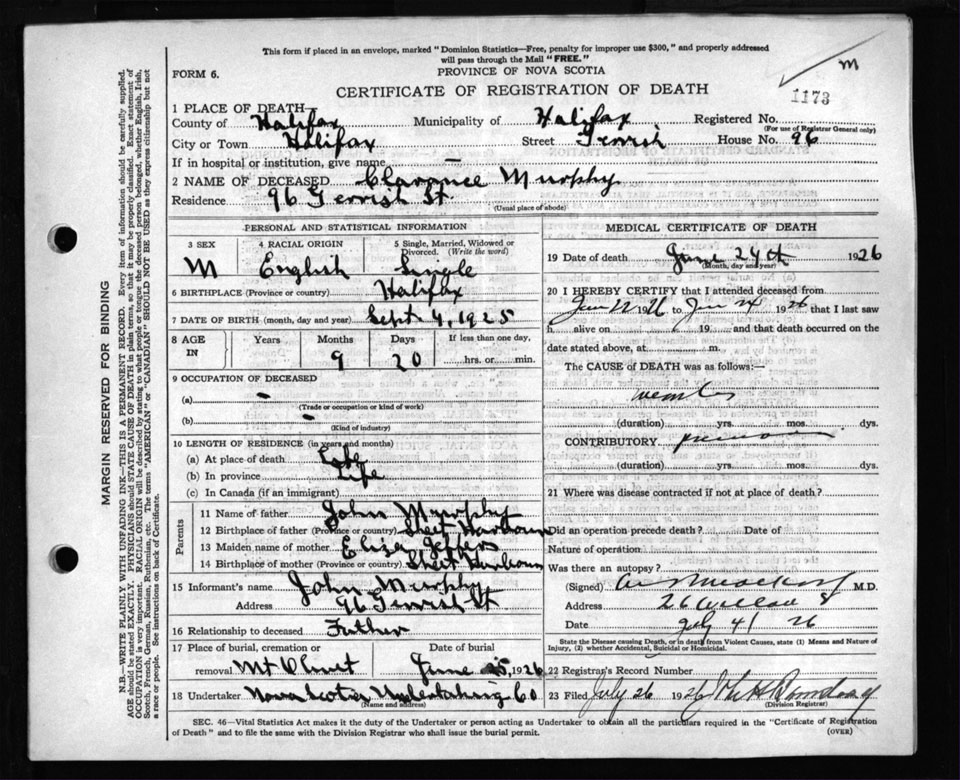 This form if placed in an envelope, marked "Dominion Statistics—Free, penalty for improper use $300," and properly addressed
will pass through the Mail "FREE."
m
1173
FORM 6.
PROVINCE OF NOVA SCOTIA
CERTIFICATE OF REGISTRATION OF DEATH
1 PLACE OF DEATH—
County of Halifax Municipality of Halifax Registered No.
(For use of Registrar General only)
City or Town Halifax Street Gerrish House No. 96
If in hospital or institution, give name —
2 NAME OF DECEASED Clarence Murphy
Residence 96 Gerrish St.
(Usual place of abode)
PERSONAL AND STATISTICAL INFORMATION
3 SEX 4 RACIAL ORIGIN 5 Single, Married, Widowed or Divorced. (Write the word)
M English Single
6 BIRTHPLACE (Province or country) Halifax
7 DATE OF BIRTH (month, day and year) Sept 4, 1925
8 AGE IN Years Months Days If less than one day,
9 20 hrs. or min.
9 OCCUPATION OF DECEASED
(a) -
(Trade or occupation or kind of work)
(b) -
(Kind of industry)
10 LENGTH OF RESIDENCE (in years and months)
(a) At place of death Life
(b) In province Life
(c) In Canada (if an immigrant)
Parents
11 Name of father John Murphy
12 Birthplace of father (Province or country) Sheet Harbour
13 Maiden name of mother Eliza Jeffers
14 Birthplace of mother (Province or country) Sheet Harbour
15 Informant's name John Murphy
Address 96 Gerrish St
16 Relationship to deceased Father
17 Place of burial, cremation or Date of burial
removal Mt Olivet June 25, 1926
18 Undertaker Nova Scotia Undertaking Co
(Name and address)
MEDICAL CERTIFICATE OF DEATH
19 Date of death June 24th 1926
(Month, day and year)
20 I HEREBY CERTIFY that I attended deceased from
Jun 1926 to Jun 24 1926 that I last saw
h alive on 19 and that death occurred on the
date stated above, at m.
The CAUSE of DEATH was as follows:—
measles
(duration) yrs. mos. dys.
CONTRIBUTORY pneumonia
(duration) yrs. mos. dys.
21 Where was disease contracted if not at place of death?
Did an operation precede death? Date of
Nature of operation
Was there an autopsy?
(Signed) M.D.
Address 26 Willow
Date July 4 1926
State the Disease causing Death, or in death from Violent Causes, state (1) Means and Nature of
Injury, (2) whether Accidental, Suicidal or Homicidal.
22 Registrar's Record Number
23 Filed July 26 1926
(Division Registrar)
SEC. 46—Vital Statistics Act makes it the duty of the Undertaker or person acting as Undertaker to obtain all the particulars required in the "Certificate of Registration
of Death" and to file the same with the Division Registrar who shall issue the burial permit.
(OVER)
MARGIN RESERVED FOR BINDING
N.B.—WRITE PLAINLY WITH UNFADING INK—THIS IS A PERMANENT RECORD. Every item of information should be carefully supplied.
AGE should be stated EXACTLY. PHYSICIANS should STATE CAUSE OF DEATH in plain terms, so that it may be properly classified. Exact statement of
OCCUPATION is very important. RACIAL ORIGIN will be described by stating to what people or tongue the deceased person belonged, whether English, Irish,
Scotch, French, German, Russian, Ruthenian, etc. The terms "AMERICAN" or "CANADIAN" SHOULD NOT BE USED as they express citizenship but not
a race or people. See instructions on back of Certificate.